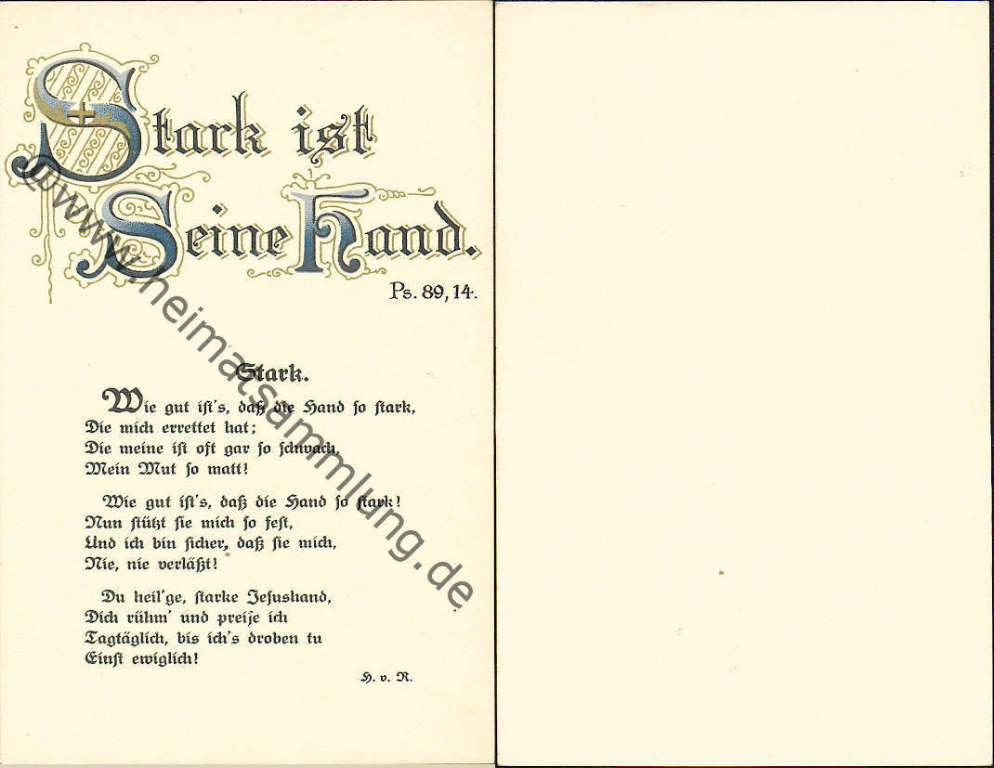 Stark ist
Seine Hand.
Ps. 89, 14.
Stark.
Wie gut ist's, daß die Hand so stark,
Die mich errettet hat;
Die meine ist oft gar so schwach,
Mein Mut so matt!
Wie gut ist's, daß die Hand so stark!
Nun stützt sie mich so fest,
Und ich bin sicher, daß sie mich,
Nie, nie verläßt!
Du heil'ge, starke Jesushand,
Dich rühm' und preise ich
Tagtäglich, bis ich's droben tu
Einst ewiglich!
H. v. R.
@www.heimatsammlung.de